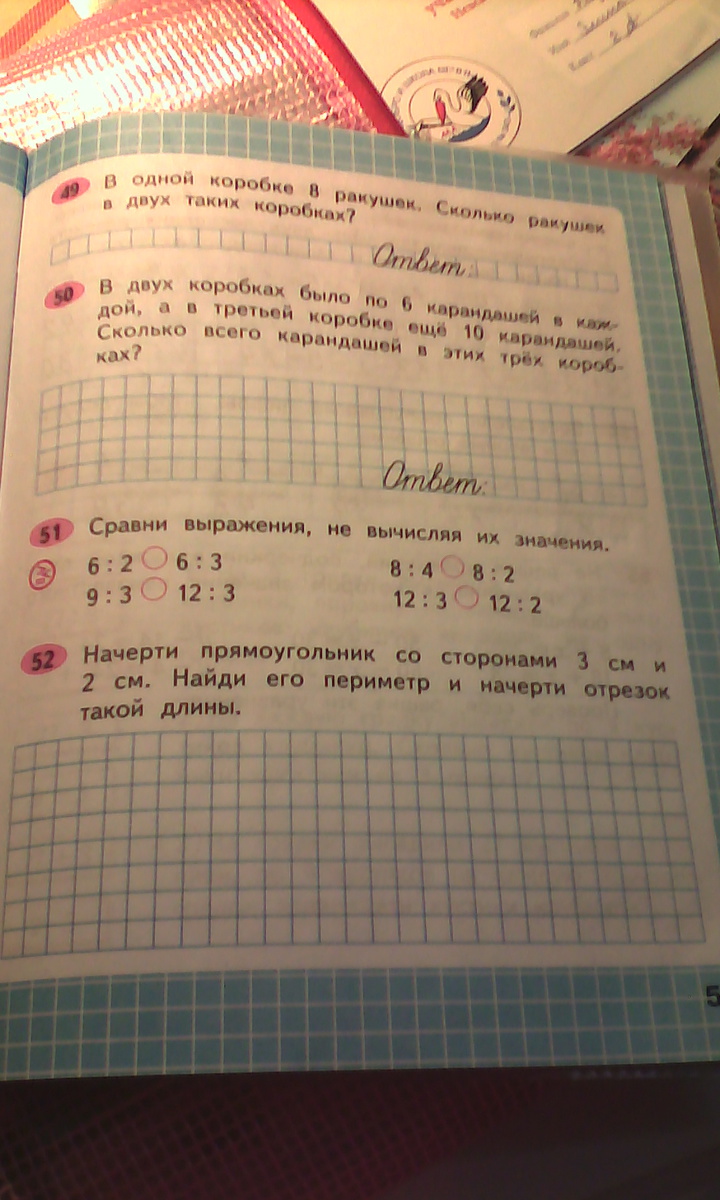 49 В одной коробке 8 ракушек. Сколько ракушек
в двух таких коробках?
Ответ:
50 В двух коробках было по 6 карандашей в каж-
дой, а в третьей коробке ещё 10 карандашей.
Сколько всего карандашей в этих трёх короб-
ках?
Ответ:
51 Сравни выражения, не вычисляя их значения.
6 : 2 ○ 6 : 3 8 : 4 ○ 8 : 2
9 : 3 ○ 12 : 3 12 : 3 ○ 12 : 2
52 Начерти прямоугольник со сторонами 3 см и
2 см. Найди его периметр и начерти отрезок
такой длины.
5